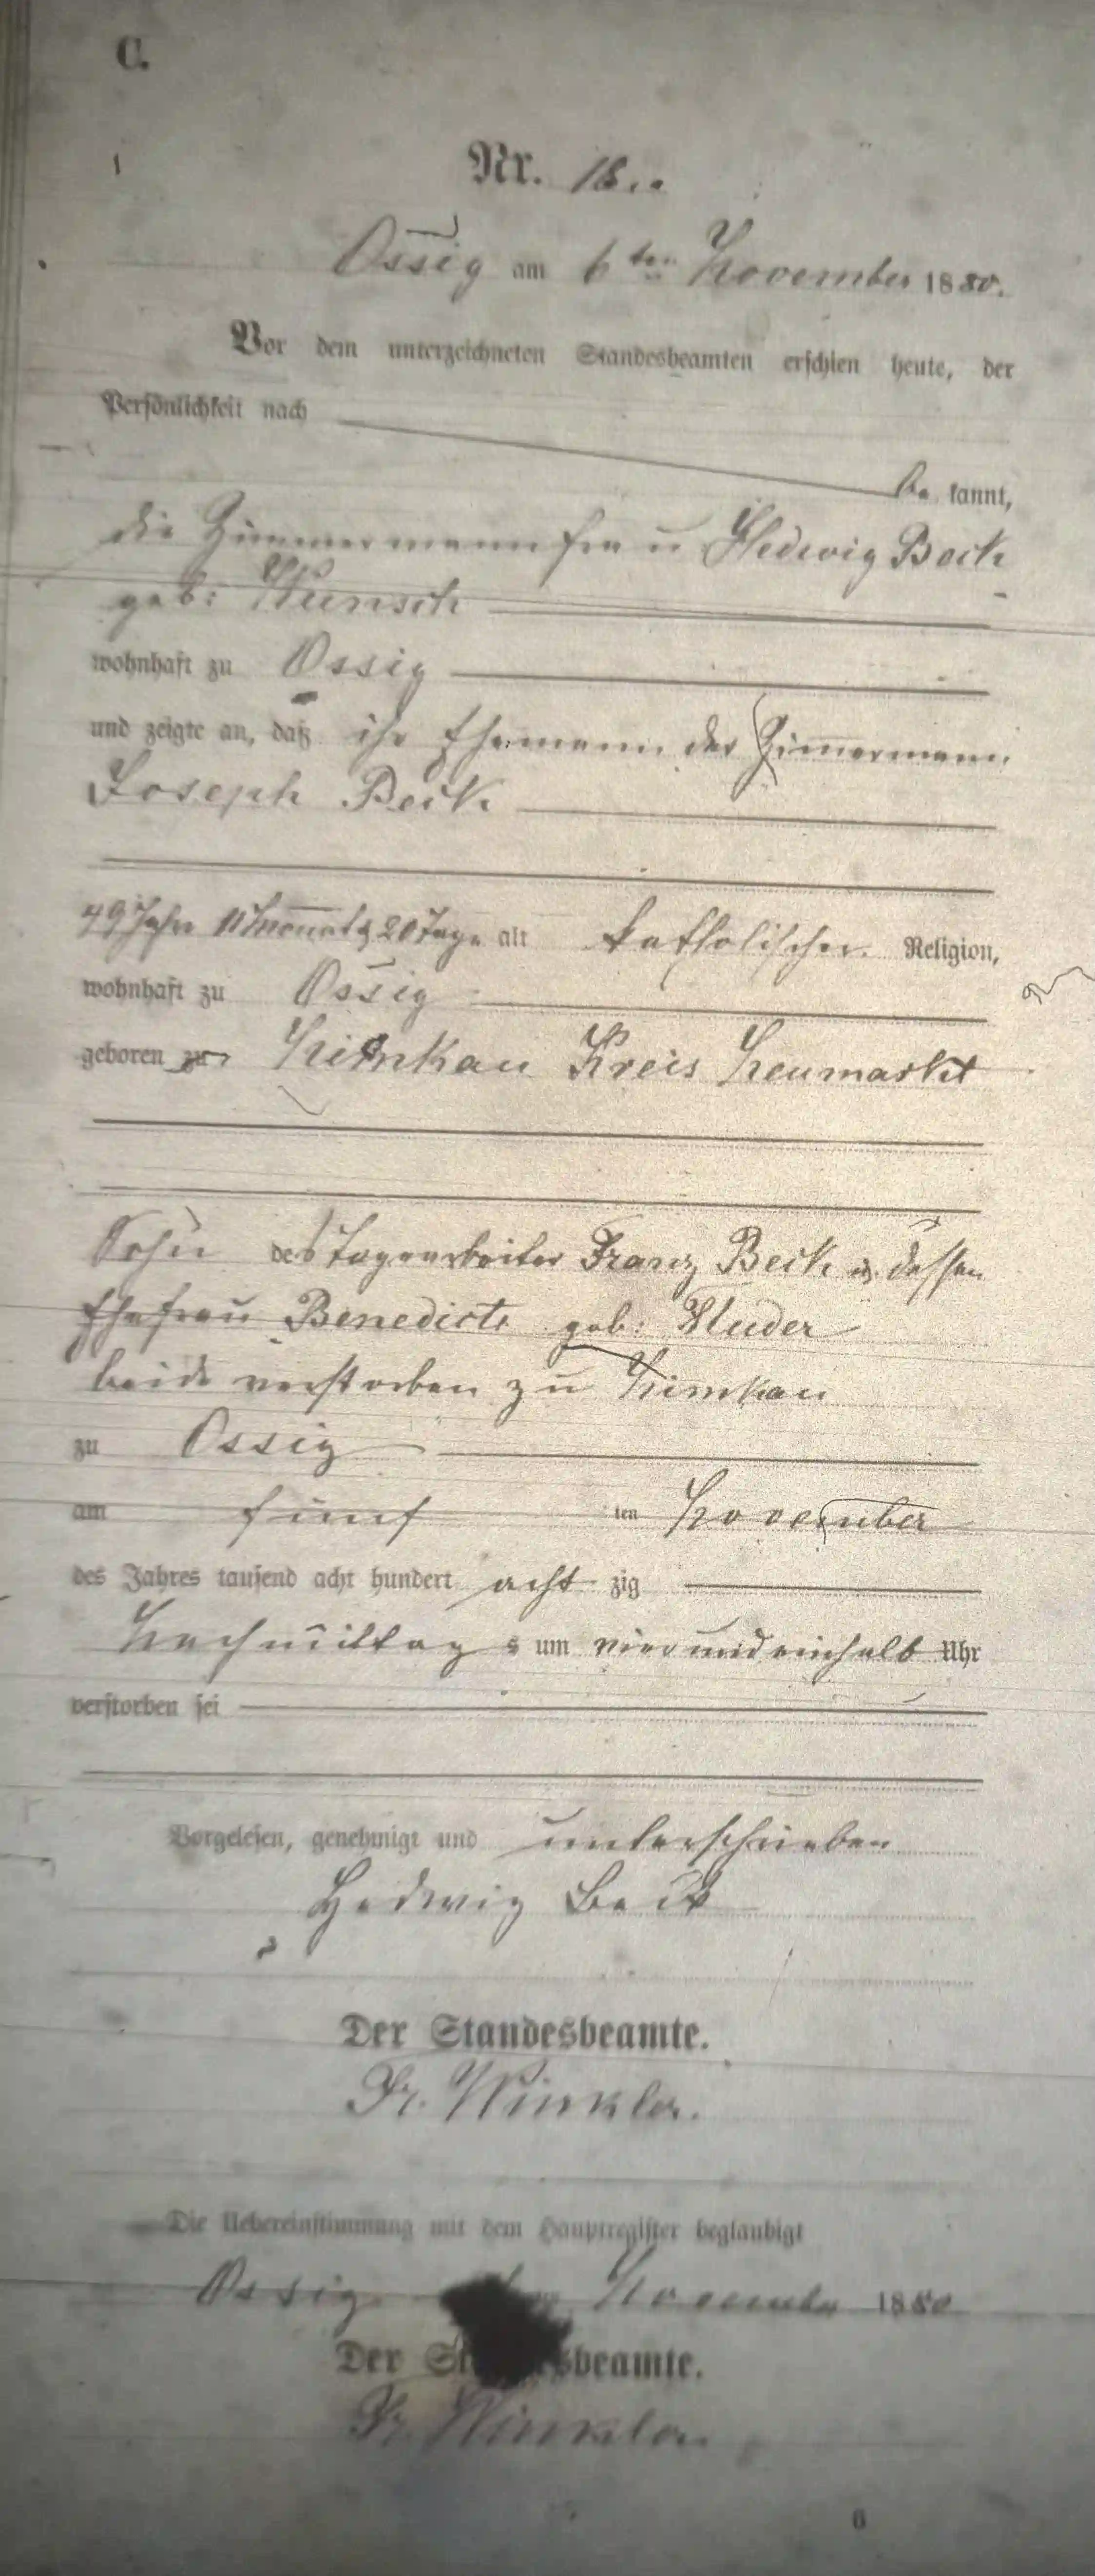 C.
Nr. 18.
Ossig am 6ten November 1880.
Vor dem unterzeichneten Standesbeamten erschien heute, der
Persönlichkeit nach
be kannt,
die Zimmermannfrau Hedwig Beck
geb: Wunsch
wohnhaft zu Ossig
und zeigte an, daß ihr Ehemann der Zimmermann
Joseph Beck
49 Jahre 11 Monate 20 Tage alt katholischer Religion,
wohnhaft zu Ossig
geboren zu Nimkau Kreis Neumarkt
Sohn des Tagearbeiter Franz Beck u. dessen
Ehefrau Benedicte geb: Studer
beide verstorben zu Nimkau
zu Ossig
am fünf ten November
des Jahres tausend acht hundert acht zig
Nachmittag s um vierundeinhalb Uhr
verstorben sei
Vorgelesen, genehmigt und unterschrieben
Hedwig Beck
Der Standesbeamte.
Fr. Winkler.
Die Uebereinstimmung mit dem Hauptregister beglaubigt
Ossig November 1880
Der Standesbeamte.
Fr. Winkler
6